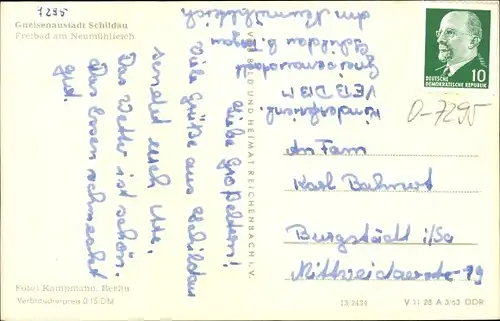 7295
Gneisenaustadt Schildau
Freibad am Neumühlteich
Liebe Großeltern!
Viele Grüße aus Schildau
sendet euch Ute.
Das Wetter ist schön.
Das Essen schmeckt
gut.
Kinderferienl.
VE13 D13 M
Gneisenaustadt
Schildau b. Torgau
am Neumühlteich
VEB BILD UND HEIMAT REICHENBACH I. V.
10
DEUTSCHE
DEMOKRATISCHE REPUBLIK
O-7295
An Fam
Karl Bahnert
Burgstädt i/Sa
Mittweidaerstr 19
Foto: Kampmann, Berlin
Verbraucherpreis 0.15 DM
13/2434
V 11 28 A 3/63 DDR